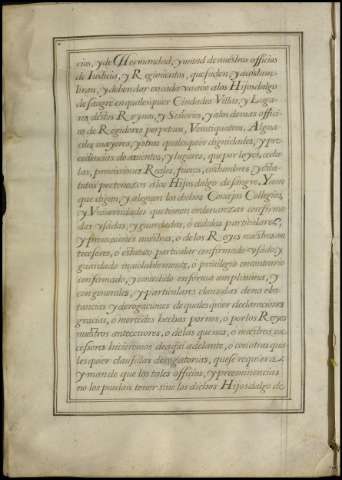 cias, y de Hermandad, y mitad de nuestros officios
de Iusticia, y Regimientos, que suelen y acostum
bran, y deben dar en cada vn año a los Hijosdalgo
de sangre en qualesquier Ciudades Villas, y Luga
res destos Reynos, y Señorios, y a los demas offici
os de Regidores perpetuos, Veintiquatros, Algua
ciles mayores, y otras qualesquier dignidades, y pre
cedencias de asientos, y lugares, que por leyes, cedu
las, provisiones Reales, fueros, costumbres y esta
tutos pertenezcan a los Hijosdalgo de sangre, Y aun
que digan, y aleguen los dichos Concejos Collegios,
y Vniversidades que tienen ordenanzas confirma
das vsadas, y guardadas, o cedulas particulares,
y provisiones nuestras, o de los Reyes nuestros an
tecesores, o estatuto particular confirmado vsado y
guardado inviolablemente, o privilegio en contrario
confirmado, y concedido en forma amplisima, y
con generales, y particulares clausulas de no obs
tancias y derogaciones de qualesquier declaraciones
gracias, o mercedes hechas por nos, o por los Reyes
nuestros antecesores, o de las que nos, o nuestros suc
cesores hicieremos de aqui adelante, o con otras qua
lesquier clausulas derogatorias, que se requieran
y mando que los tales officios, y preeminencias
no los puedan tener sino los dichos Hijosdalgo de